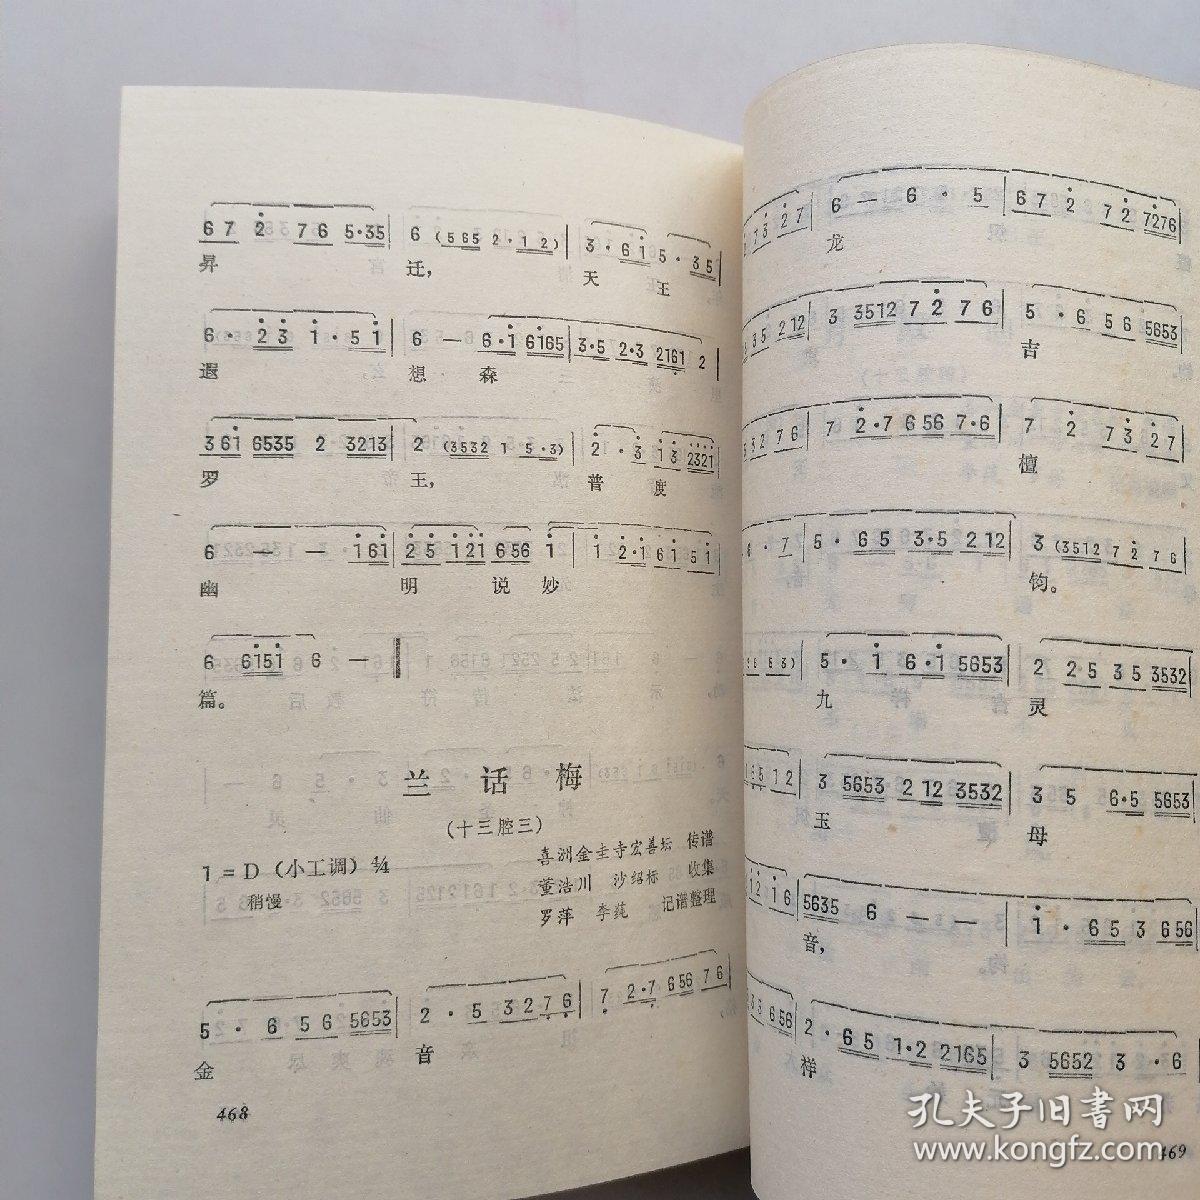 6 7 2 7 6 5·35 6 (565 2·12) 3·61 5·35
昇 迁， 天 王
6·23 1·51 6 — 6·1 6165 3·5 2·3 2161 2
遐 想 森
361 6535 2 3213 2 (3532 1 5·3) 2·3 13 2321
罗 王， 普 度
6 — — 161 25 121 656 1 1 2·1 61 51
幽 明 说 妙
6 6151 6 —
篇。
兰 话 梅
(十三腔三)
1 = D (小工调) 4/4
稍慢
喜洲金圭寺宏善坛 传谱
董浩川 沙绍标 收集
罗萍 李莼 记谱整理
5·6 56 5653 2·5 3276 7 2·7 656 76
金 音
468
7 3 2 7 6 — 6·5 672 72 7276
龙
35 212 3 3512 72 76 5·6 56 5653
吉
3276 7 2·7 656 7·6 7 2 73 27
檀
6·7 5·65 3·5 212 3 (3512 72 76
钧。
5653) 5·1 6·1 5653 2 2·5 35 3532
九 灵
1 6512 3 5653 212 3532 3 5 6·5 5653
玉 母
12 16 5635 6 — — 1·65 3 656
音，
33 656 2·65 1·2 2165 3 5652 3·6
样
469
孔夫子旧书网
www.kongfz.com